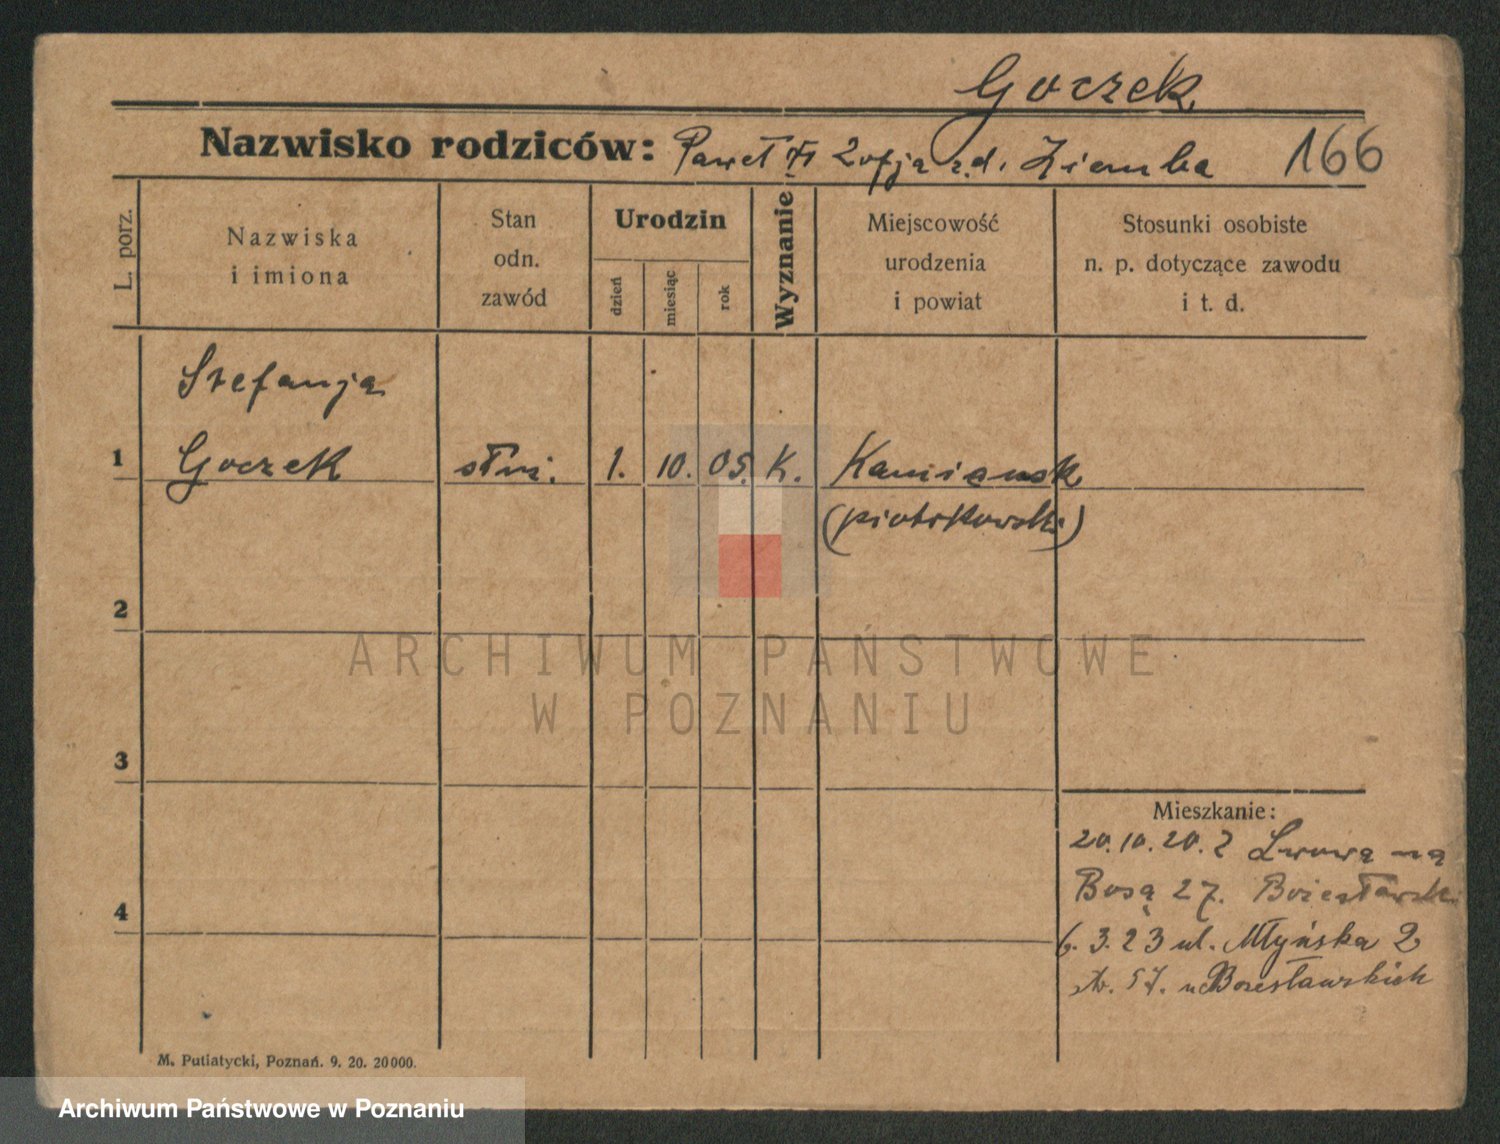 Goczek
Nazwisko rodziców: Paweł Zofja z.d. Ziemba 166
L. porz.
Nazwiska
i imiona
Stan
odn.
zawód
Urodzin
dzień
miesiąc
rok
Wyznanie
Miejscowość
urodzenia
i powiat
Stosunki osobiste
n. p. dotyczące zawodu
i t. d.
Stefanja
1 Goczek służ. 1. 10. 05. K. Kamieńsk
(piotrkowski)
2
ARCHIWUM PAŃSTWOWE
W POZNANIU
3
Mieszkanie:
20.10.20. z Lwowa na
4 Bosą 27.
6. 3. 23 ul. Młyńska 2
57. u Bolesławskich
M. Putiatycki, Poznań. 9. 20. 20000.
Archiwum Państwowe w Poznaniu